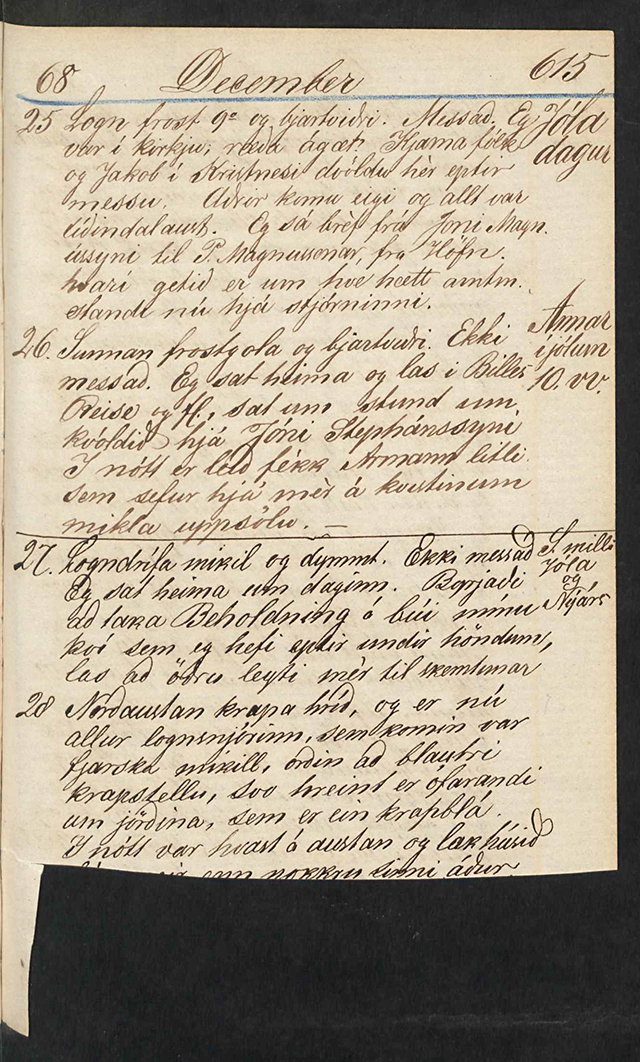 68 December 615
25 Logn frost 9° og bjartviðri. Messað. Eg Jóla
var í kirkju; ræða ágæt. Kjarna fólk dagur
og Jakob í Kristnesi dvöldu hèr eptir
messu. Aðrir komu eigi og allt var
tíðindalaust. Eg sá brèf frá Jóni Magn.
ússyni til P. Magnussonar, fra Höfn.
hvarí getið er um hve hætt amtm.
standi nú hjá stjórninni.
26. Sunnan frostgola og bjartviðri. Ekki Annar
messað. Eg sat heima og las i Billes í jólum
Reise og H., sat um stund um 10. vv.
kvöldið hjá Jóni Stephánssyni
I nótt er leið fékk Armann litli
sem sefur hjá mèr á kvistinum
mikla uppsölu. —
27. Logndrífa mikil og dymmt. Ekki messað S. milli
Eg sat heima um daginn. Byrjaði Jóla
að taka Beholdning á búi mínu og
þvi sem eg hefi eptir undir höndum, Nýárs
las að öðru leyti mèr til skemtunar
28 Norðaustan krapa hríð, og er nú
allur lognsnjórinn, sem komin var
fjarska mikill, orðin að blautri
krapstellu, svo hreint er ofarandi
um jörðina, sem er ein krapblá.
I nótt var hvast á austan og lak húsið
enn nokkru sinni áður